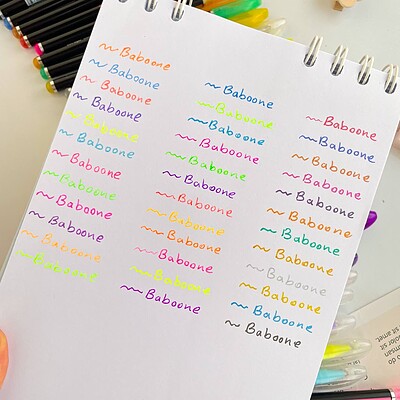 ~ Baboone
~ Baboone
~ Baboone
~ Baboone
~ Baboone
~ Baboone
~ Baboone
~ Baboone
~ Baboone
~ Baboone
~ Baboone
~ Baboone
~ Baboone
~ Baboone
~ Baboone
~ Baboone
~ Baboone
~ Baboone
~ Baboone
~ Baboone
~ Baboone
~ Baboone
~ Baboone
~ Baboone
~ Baboone
~ Baboone
~ Baboone
~ Baboone
~ Baboone
~ Baboone
~ Baboone
~ Baboone
~ Baboone
~ Baboone
~ Baboone
~ Baboone
sit
amet.